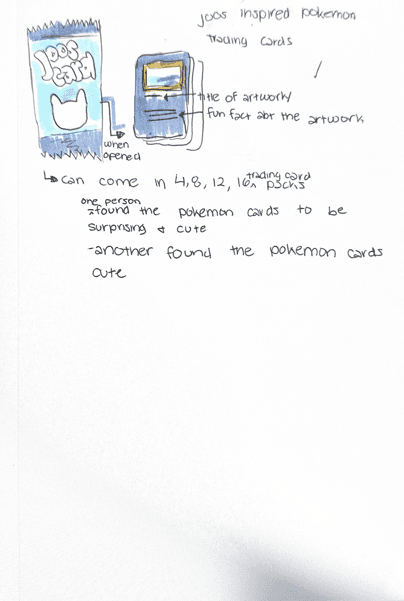 joos inspired pokemon
trading cards
joos
card
title of artwork
fun fact abt the artwork
when
opened
can come in 4,8, 12, 16 trading card packs
one person
-found the pokemon cards to be
surprising & cute
-another found the pokemon cards
cute